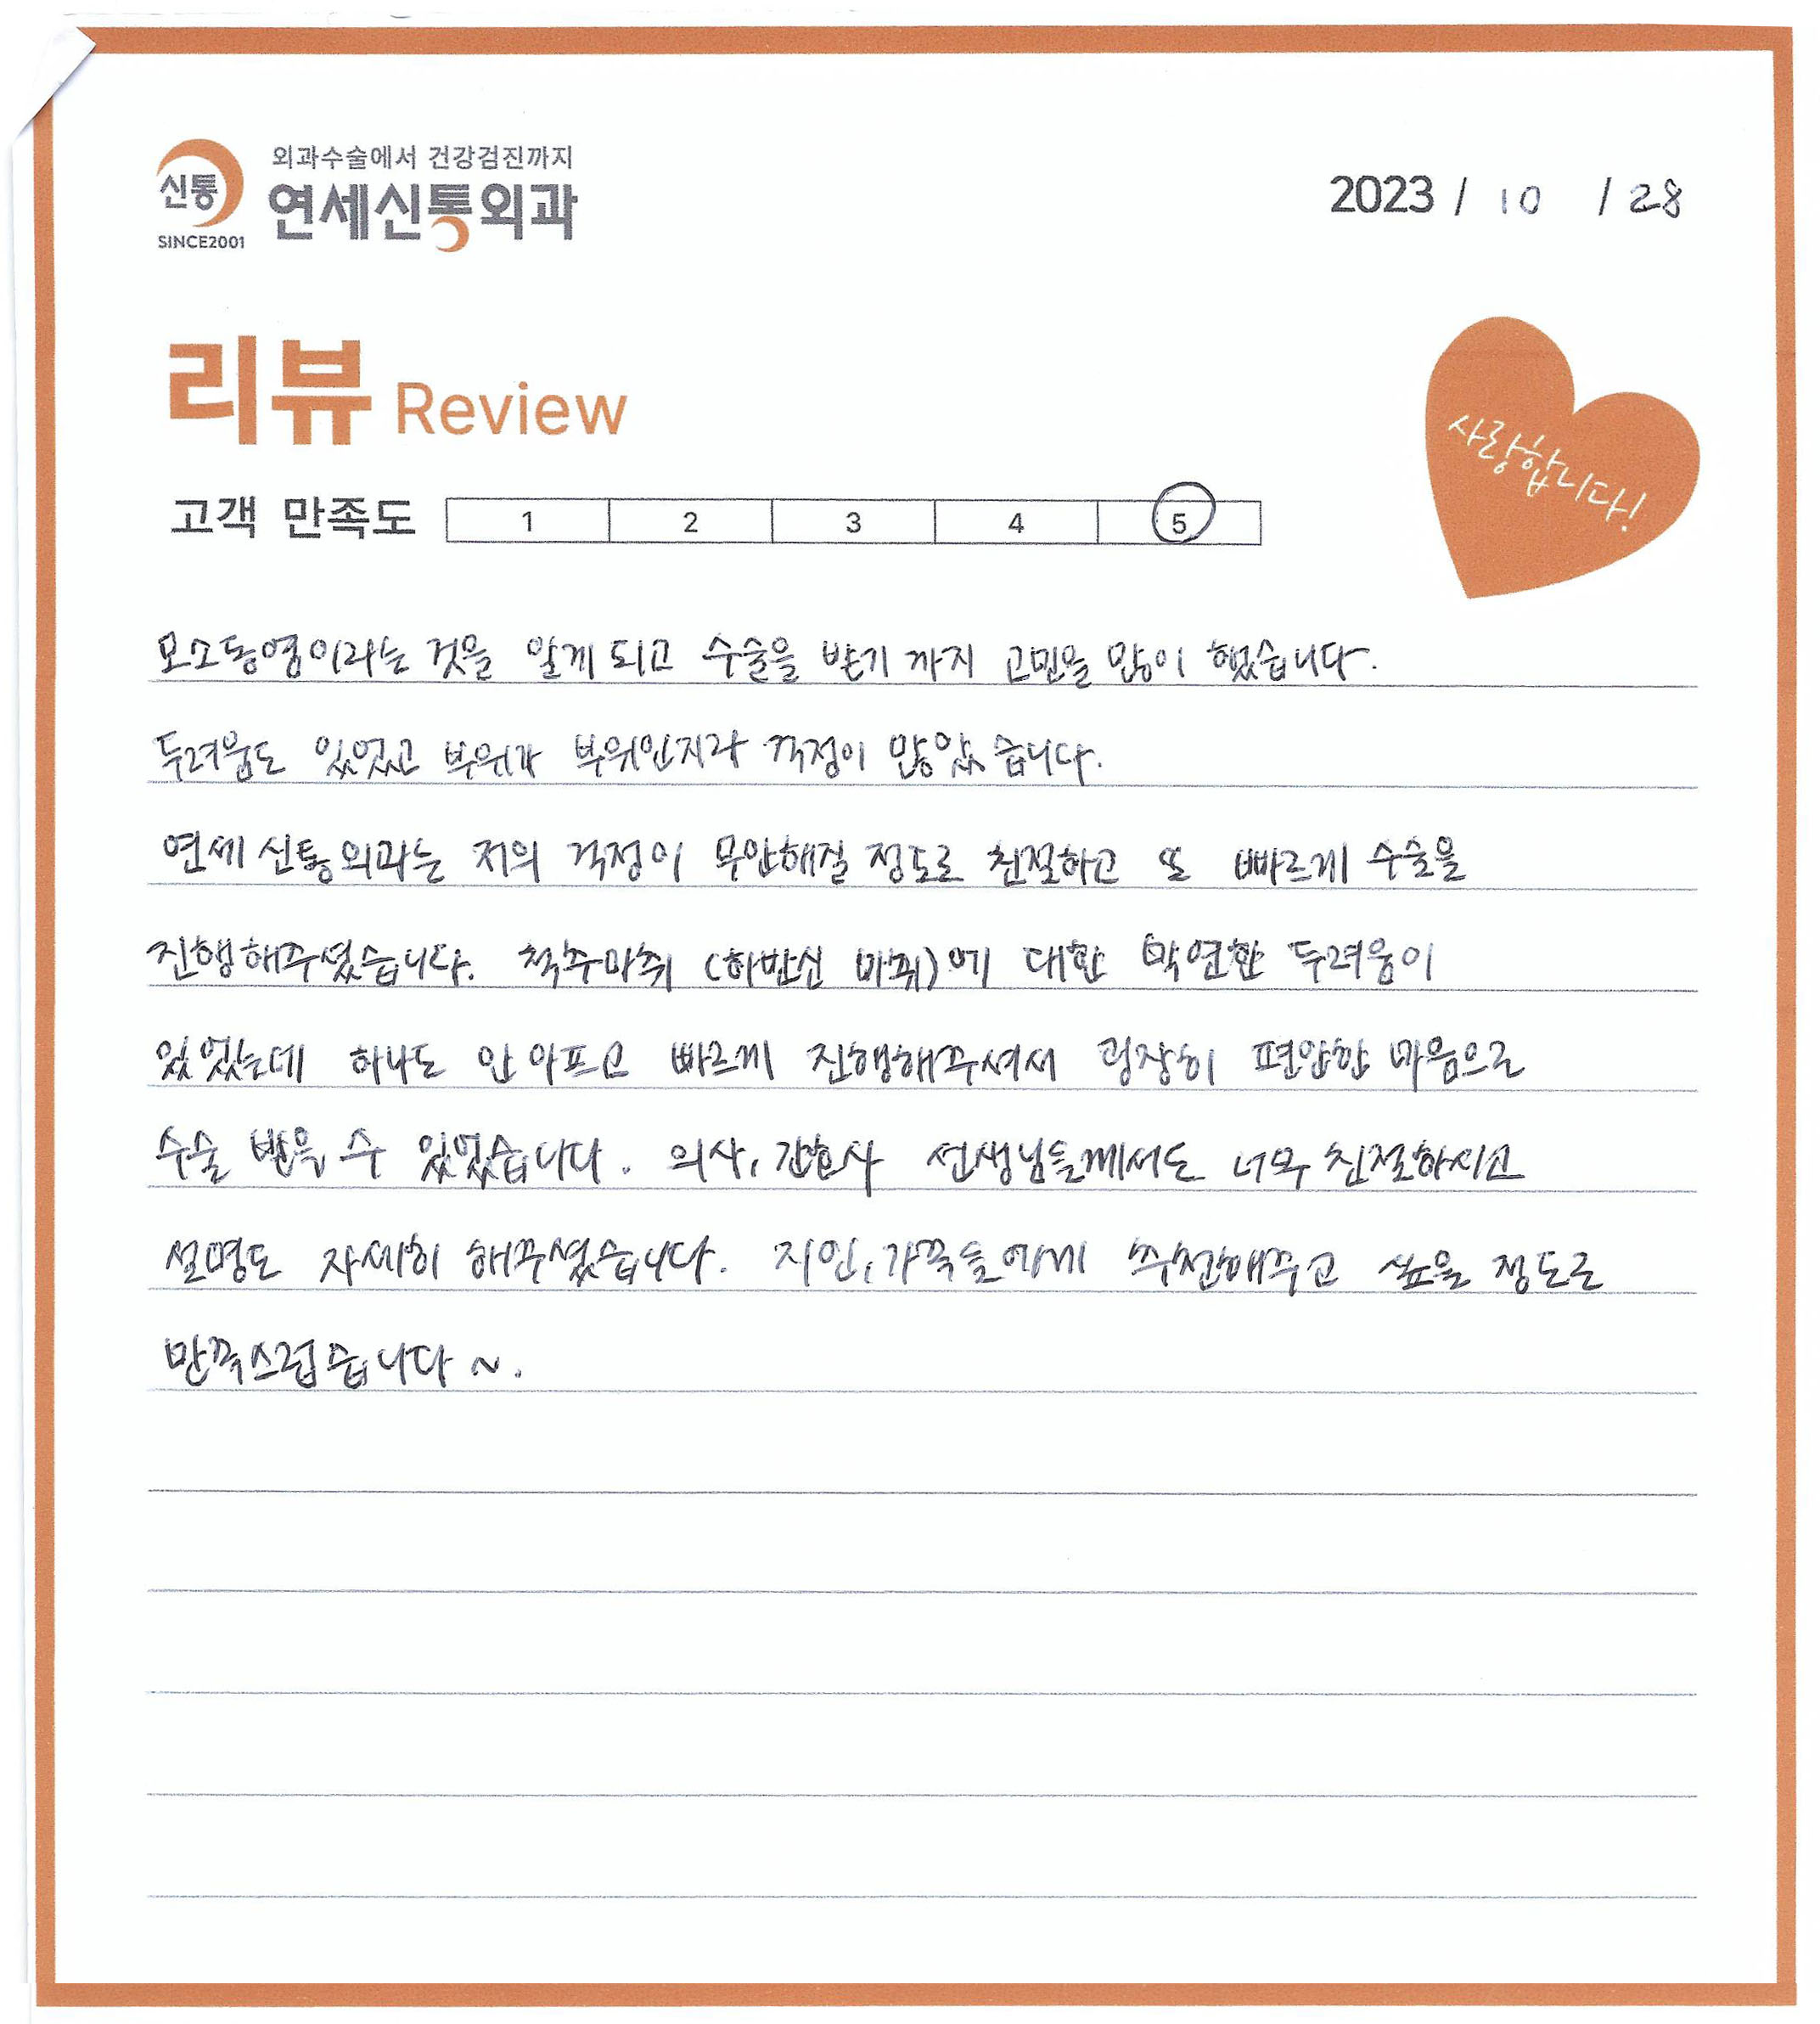 외과수술에서 건강검진까지
신통 연세신통외과
SINCE2001
2023 / 10 / 28
리뷰 Review
사랑합니다!
고객 만족도 1 2 3 4 5
모소동염이라는 것을 알게 되고 수술을 받기 까지 고민을 많이 했습니다.
두려움도 있었고 부위가 부위인지라 걱정이 많았습니다.
연세신통외과는 저의 걱정이 무안해질 정도로 친절하고 또 빠르게 수술을
진행해주셨습니다. 척추마취 (하반신 마취)에 대한 막연한 두려움이
있었는데 하나도 안 아프고 빠르게 진행해주셔서 굉장히 편안한 마음으로
수술 받을 수 있었습니다. 의사, 간호사 선생님들께서도 너무 친절하시고
설명도 자세히 해주셨습니다. 지인, 가족들에게 추천해주고 싶을 정도로
만족스럽습니다 ~.